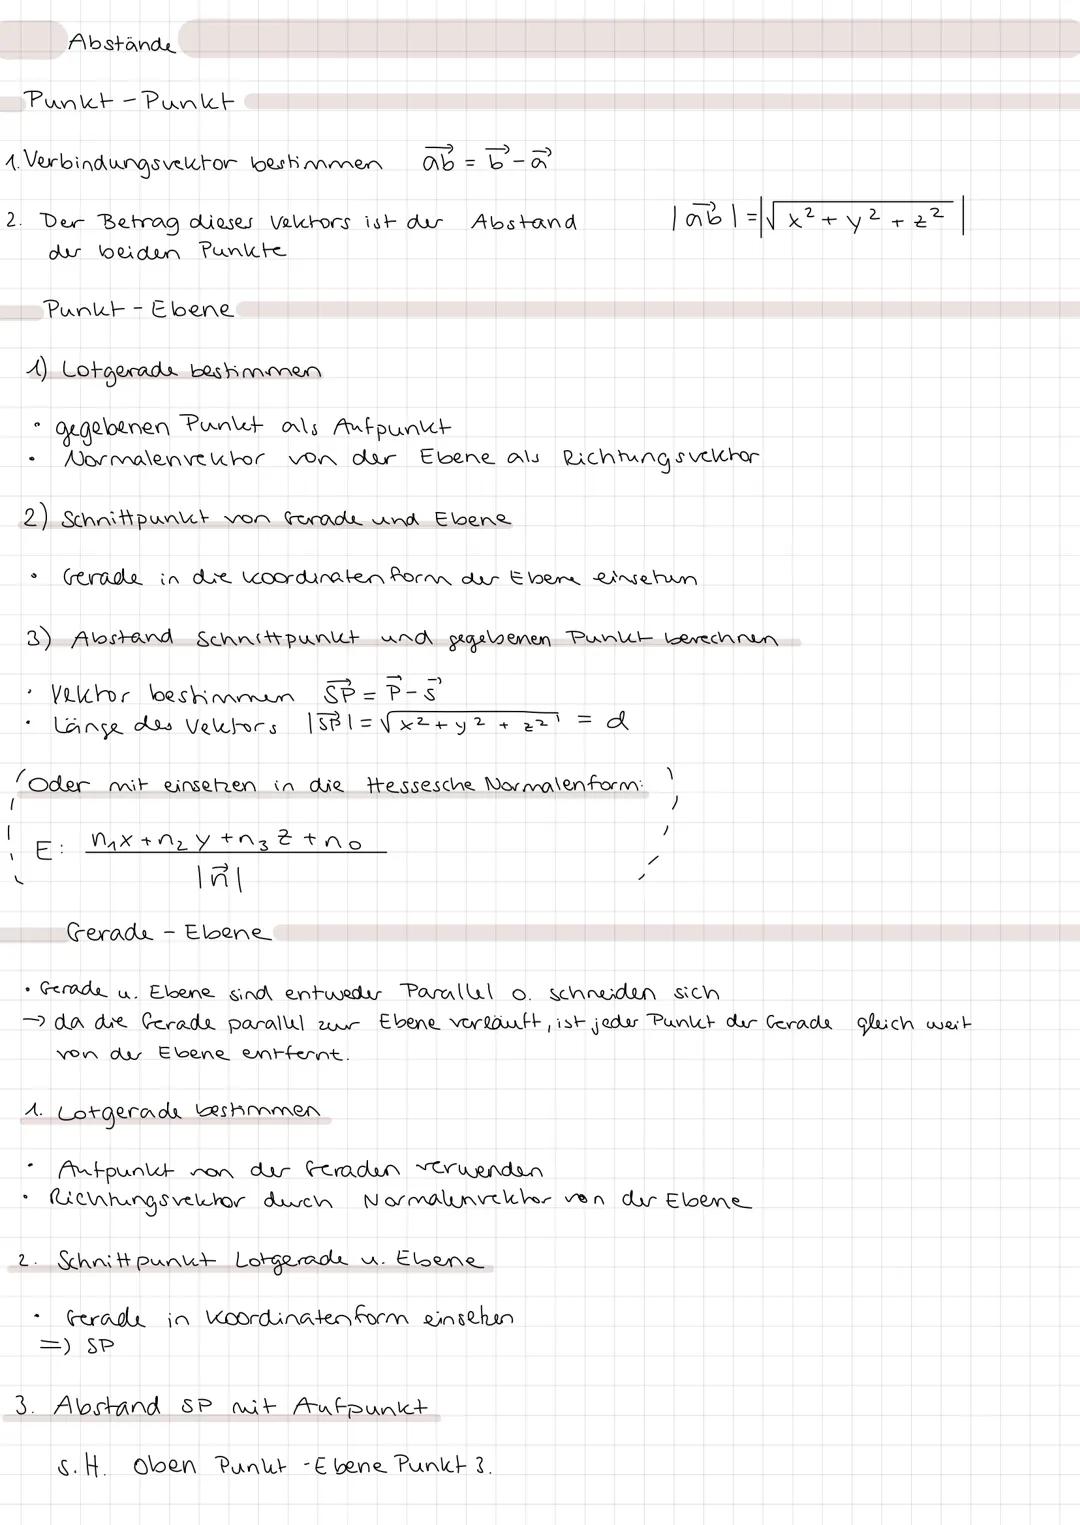 Abstände
Punkt - Punkt
1. Verbindungsvektor bestimmen   \vec{ab} = \vec{b} - \vec{a}
2. Der Betrag dieses Vektors ist der Abstand   |\vec{ab}| = |√x² + y² + z²|
der beiden Punkte
Punkt - Ebene
1) Lotgerade bestimmen
• gegebenen Punkt als Aufpunkt
• Normalenvektor von der Ebene als Richtungsvektor
2) Schnittpunkt von Gerade und Ebene
• Gerade in die Koordinatenform der Ebene einsetzen
3) Abstand Schnittpunkt und gegebenen Punkt berechnen
• Vektor bestimmen \vec{SP} = \vec{P} - \vec{S}
• Länge des Vektors |\vec{SP}| = √x² + y² + z² = d
(Oder mit einsetzen in die Hessesche Normalenform:)
E: \frac{n₁x + n₂y + n₃z + n₀}{|\vec{n}|}
Gerade - Ebene
• Gerade u. Ebene sind entweder Parallel o. schneiden sich
→ da die Gerade parallel zur Ebene verläuft, ist jeder Punkt der Gerade gleich weit
von der Ebene entfernt.
1. Lotgerade bestimmen
• Aufpunkt von der Geraden verwenden
• Richtungsvektor durch Normalenvektor von der Ebene
2. Schnittpunkt Lotgerade u. Ebene
• Gerade in Koordinatenform einsetzen
=) SP
3. Abstand SP mit Aufpunkt
s.H. Oben Punkt - Ebene Punkt 3.